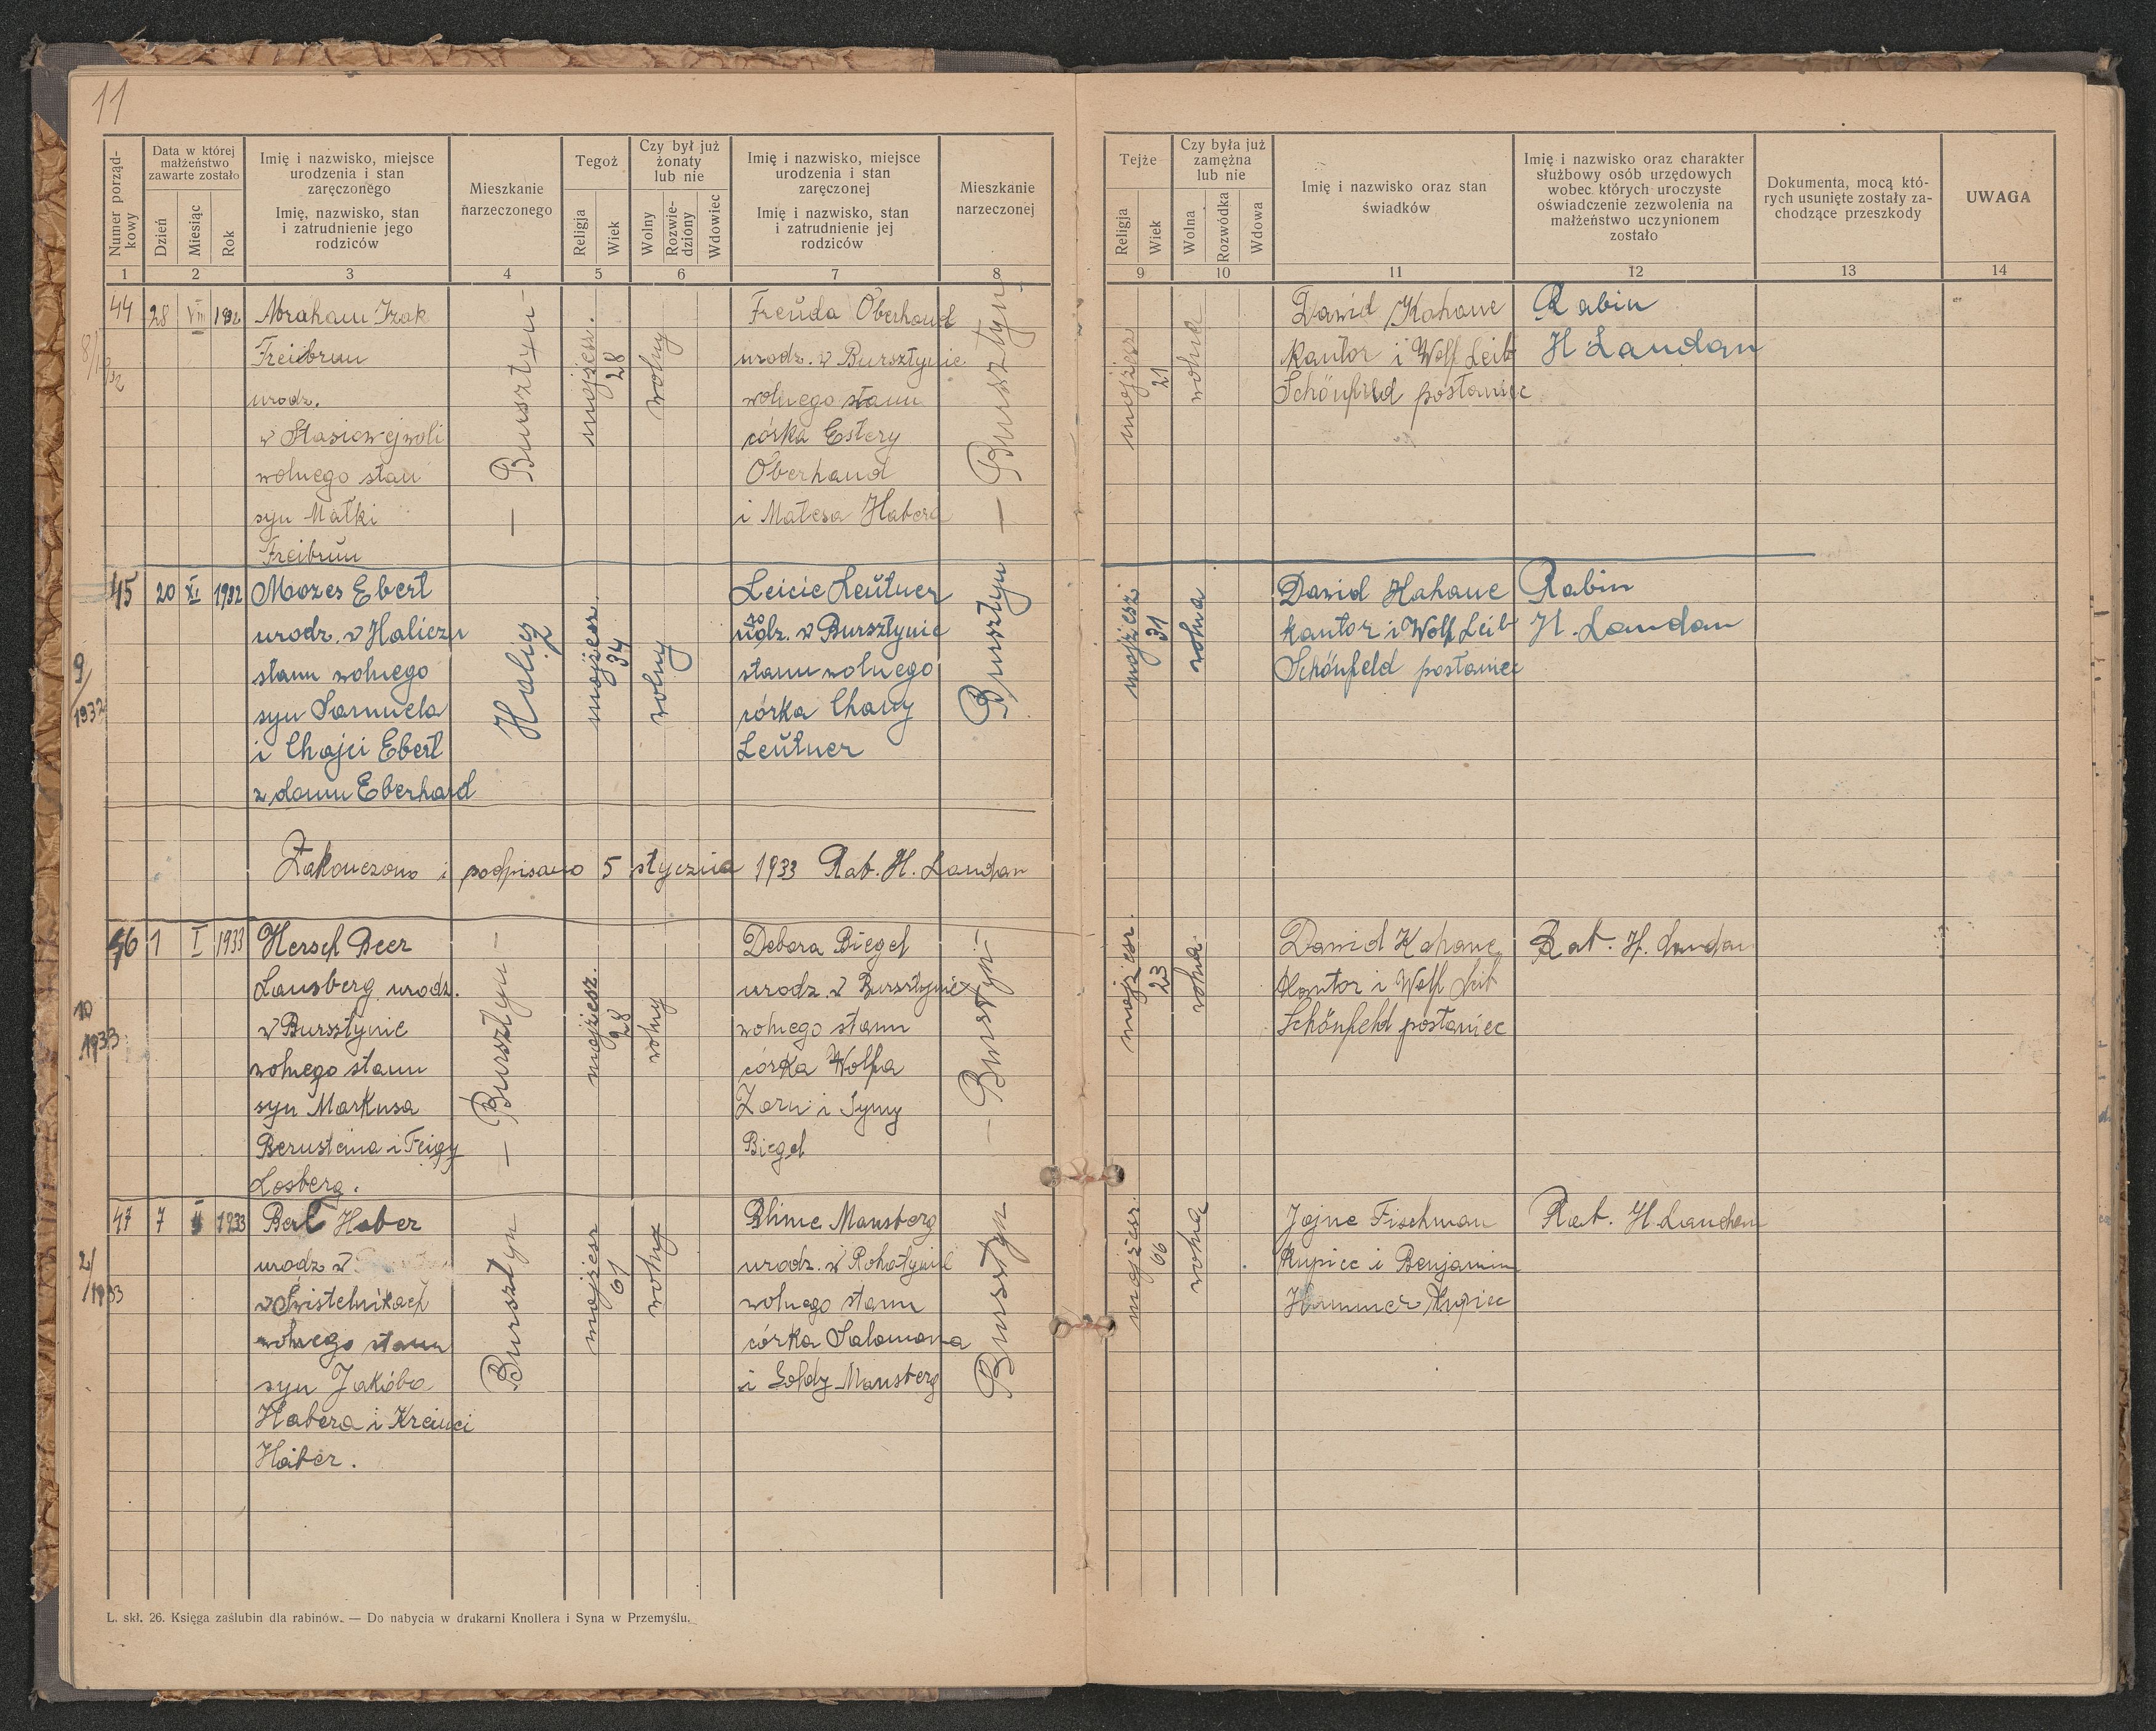 11
Numer porząd-
kowy
Data w której
małżeństwo
zawarte zostało
Dzień
Miesiąc
Rok
Imię i nazwisko, miejsce
urodzenia i stan
zaręczonego
Imię, nazwisko, stan
i zatrudnienie jego
rodziców
Mieszkanie
narzeczonego
Tegoż
Religja
Wiek
Czy był już
żonaty
lub nie
Wolny
Rozwie-
dziony
Wdowiec
Imię i nazwisko, miejsce
urodzenia i stan
zaręczonej
Imię i nazwisko, stan
i zatrudnienie jej
rodziców
Mieszkanie
narzeczonej
Tejże
Religja
Wiek
Czy była już
zamężna
lub nie
Wolna
Rozwódka
Wdowa
Imię i nazwisko oraz stan
świadków
Imię i nazwisko oraz charakter
służbowy osób urzędowych
wobec których uroczyste
oświadczenie zezwolenia na
małżeństwo uczynionem
zostało
Dokumenta, mocą któ-
rych usunięte zostały za-
chodzące przeszkody
UWAGA
1 2 3 4 5 6 7 8 9 10 11 12 13 14
44
28 VIII 1932
Abraham Izak
Freibrun
urodz.
w Stasiowejwoli
wolnego stan
syn Małki
Freibrŭn
— Bursztyn —
mojżesz.
28
wolny
Freŭda Oberhand
urodz. w Bursztynie
wolnego stanu
córka Estery
Oberhand
i Matesa Habera
— Bursztyn —
mojżesz
21
wolna
Dawid Kahane
Kantor i Wolf Leib
Schönfeld posłaniec
Rabin
H Landau
45
9/1932
20 XI 1932
Mozes Ebert
urodz. w Haliczu
stanu wolnego
syn Samuela
i Chajci Ebert
z domu Eberhard
Halicz
mojżesz.
34
wolny
Leicie Leŭtner
urodz. w Bursztynie
stanu wolnego
córka Chany
Leŭtner
Bursztyn
mojżesz
31
wolna
Dawid Kahane
Kantor i Wolf Leib
Schönfeld posłaniec
Rabin
H. Landau
Zakończono i podpisano 5 stycznia 1933 Rab. H. Landau
46
10
1933
1 I 1933
Hersch Beer
Lausberg urodz.
w Bursztynie
wolnego stanu
syn Markusa
Bernsteina i Feigy
Losberg.
— Bursztyn —
mojżesz.
28
wolny
Debora Biegel
urodz. w Bursztynie
wolnego stanu
córka Wolfa
Zorn i Symy
Biegel
— Bursztyn —
mojżesz.
23
wolna.
Dawid Kahane
Kantor i Wolf Leib
Schönfeld posłaniec
Rab. H. Landau
47
2/1933
7 II 1933
Berl Haber
urodz w
w Świstelnikach
wolnego stanu
syn Jakóba
Habera i Kreinci
Haber.
Bursztyn
mojżesz
61
wolny
Blime Mansberg
urodz. w Rohatynie
wolnego stanu
córka Salamona
i Goldy Mansberg
Bursztyn
mojżesz.
66
wolna
Jojne Fischman
Kupiec i Benjamin
Hammer Kupiec
Rab. H Landau
L. skł. 26. Księga zaślubin dla rabinów. — Do nabycia w drukarni Knollera i Syna w Przemyślu.